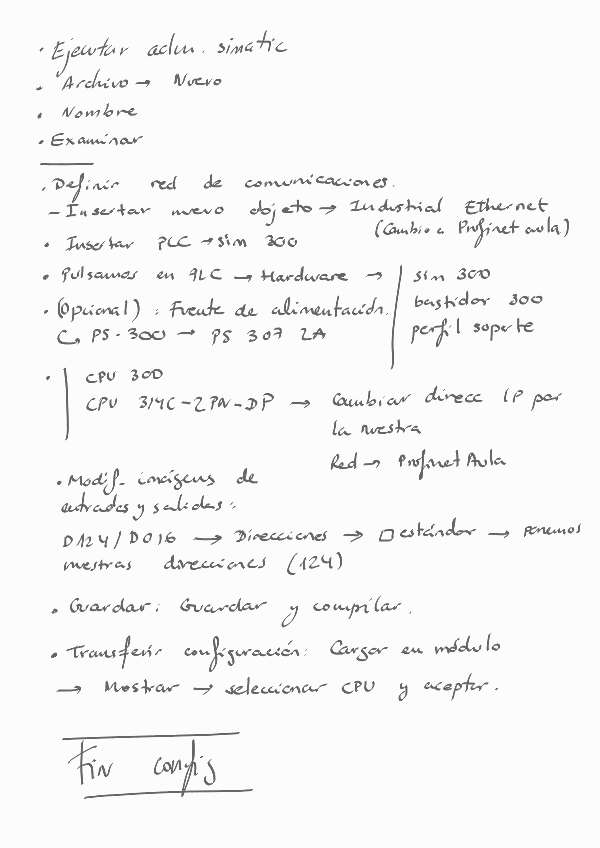 · Ejecutar adm. simatic
· Archivo → Nuevo
· Nombre
· Examinar
· Definir red de comunicaciones.
- Insertar nuevo objeto → Industrial Ethernet
(Cambio a Profinet aula)
· Insertar PLC → sim 300
· Pulsamos en PLC → Hardware → | sim 300
bastidor 300
perfil soporte
· (Opcional) : Fuente de alimentación.
↳ PS-300 → PS 307 2A
· | CPU 300
CPU 314C-2PN-DP → Cambiar direcc IP por
la nuestra
Red → Profinet Aula
· Modif. imágens de
entradas y salidas:
DI24/DO16 → Direcciones → □ estándar → ponemos
nuestras direcciones (124)
· Guardar: Guardar y compilar.
· Transferir configuración: Cargar en módulo
→ Mostrar → seleccionar CPU y aceptar.
Fin config